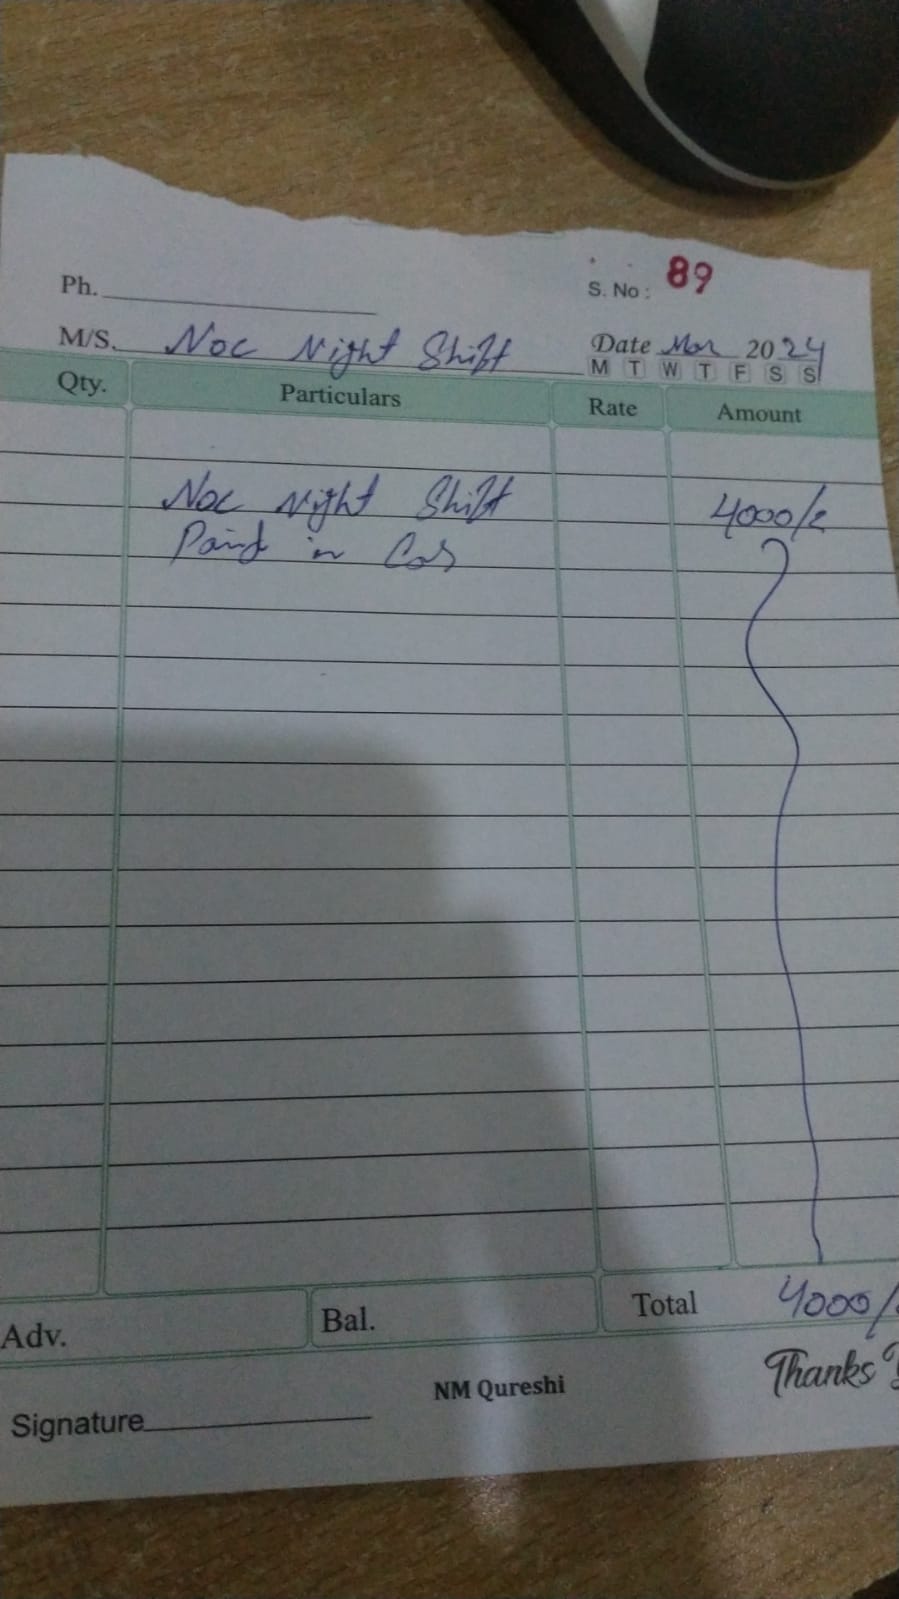 Ph.
S. No: 89
M/S. Noc Night Shift
Date Mar 2024
M T W T F S S
Qty. Particulars Rate Amount
Noc Night Shift 4000/-
Paid in Cas
Total 4000/
Adv. Bal.
Thanks
NM Qureshi
Signature